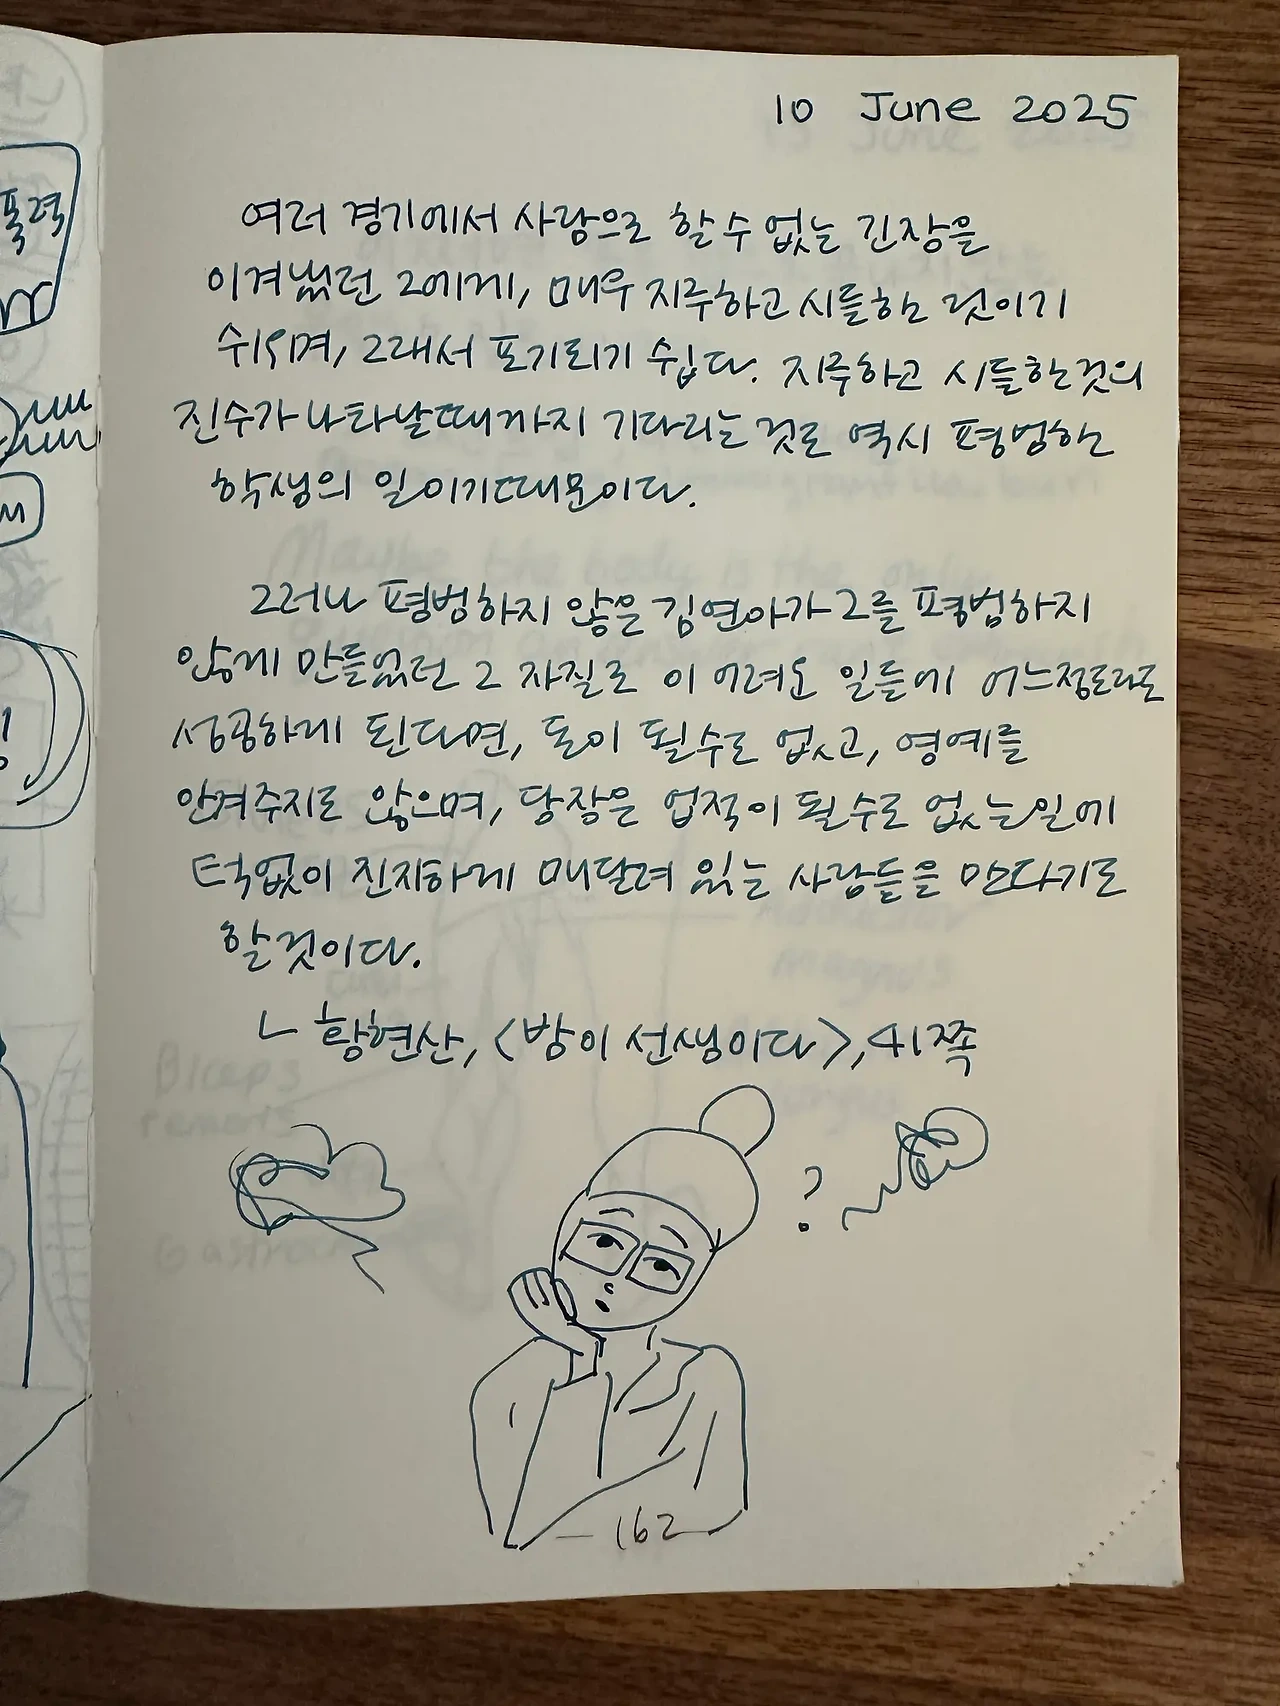 10 June 2025
여러 경기에서 사람으로 할 수 없는 긴장을
이겨냈던 그에게, 매우 지루하고 시들한 것이기
쉬우며, 그래서 포기되기 쉽다. 지루하고 시들한 것의
진수가 나타날 때까지 기다리는 것도 역시 평범한
학생의 일이기 때문이다.
그러나 평범하지 않은 김연아가 그를 평범하지
않게 만들었던 그 자질로 이 어려운 일들에 어느정도라도
성공하게 된다면, 돈이 될 수도 없고, 영예를
안겨주지도 않으며, 당장은 업적이 될 수도 없는 일에
턱없이 진지하게 매달려 있는 사람들을 만나기도
할 것이다.
ㄴ 황현산, <밤이 선생이다>, 41쪽
?
162
폭력